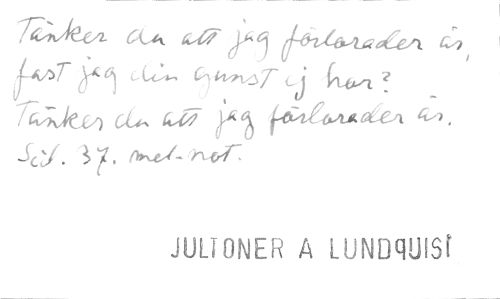 Tänker du att jag förlorader är,
fast jag din gunst ej har?
Tänker du att jag förlorader är.
Sid. 37. mel-not.
JULTONER A LUNDQUIST